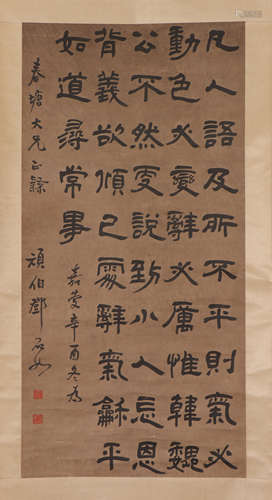 凡人語及所不平則氣必
動色必變辭必厲惟韓魏
公不然更說到小人忘恩
背義欲傾己處辭氣龢平
如道尋常事
嘉慶辛酉冬為
春塘大兄正隸 頑伯鄧石如